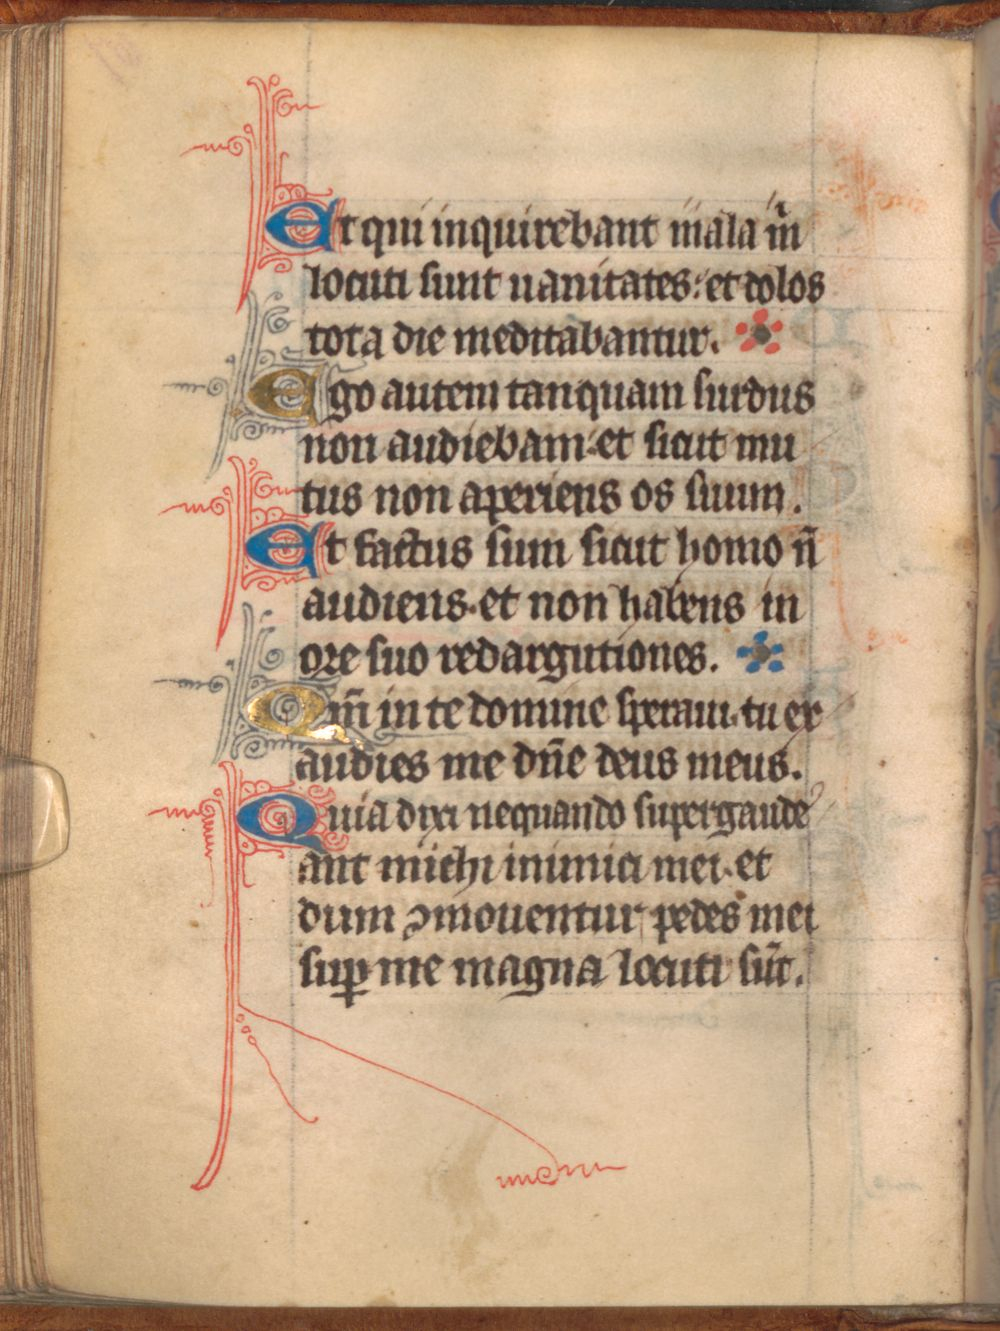 Et qui inquirebant mala m̄
locuti sunt uanitates: et dolos
tota die meditabantur.
Ego autem tanquam surdus
non audiebam· et sicut mu
tus non aperiens os suum.
Et factus sum sicut homo n̄
audiens· et non habens in
ore suo redargutiones.
Qm̄ in te domine speraui· tu ex
audies me dn̄e deus meus.
Quia dixi nequando supergaude
ant michi inimici mei· et
dum ꝯmouentur pedes mei
suꝑ me magna locuti sūt.